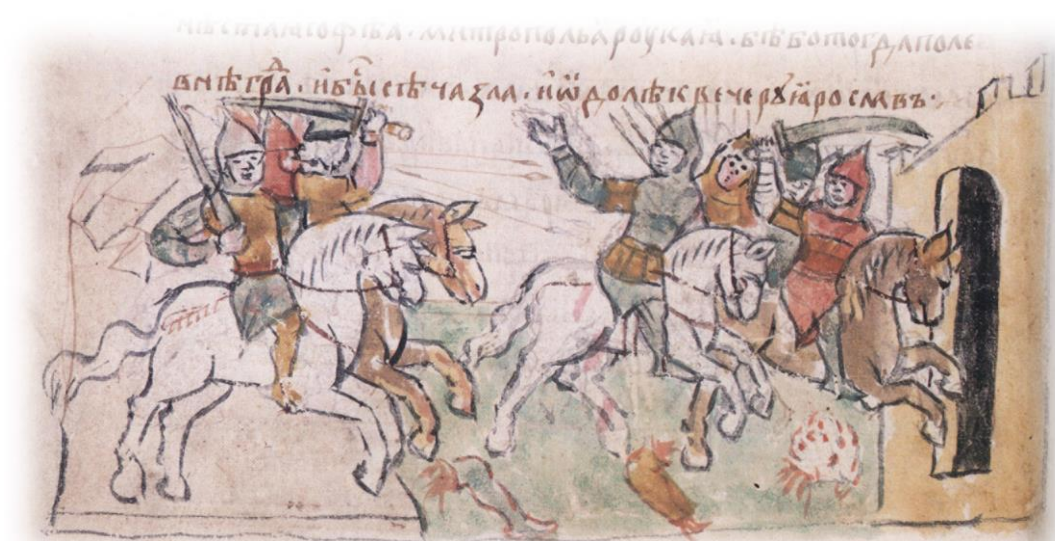 нѣ стаꙗ софьꙗ. митропольꙗ роускаꙗ. бѣ бо тогда поле
внѣ гра̑. и бы̑ сѣча зла. и ѡ̑долѣ к вечерꙋ ꙗрославъ.